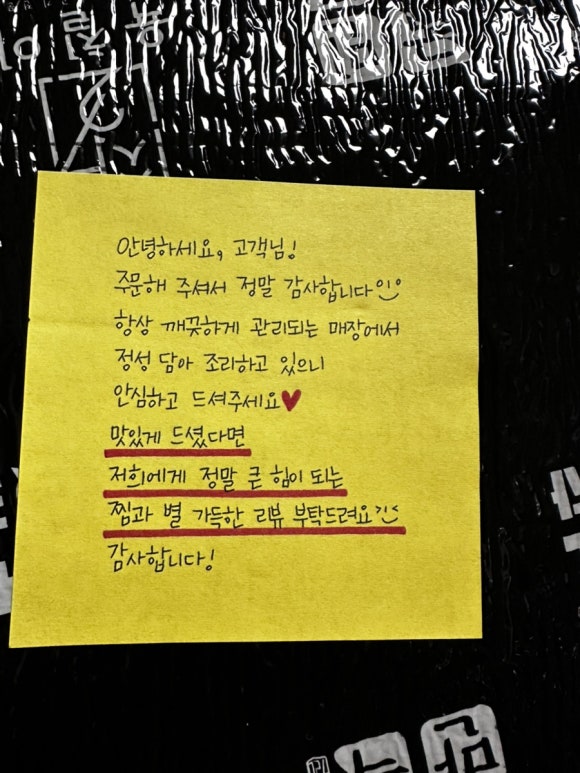 안녕하세요, 고객님!
주문해 주셔서 정말 감사합니다
항상 깨끗하게 관리되는 매장에서
정성 담아 조리하고 있으니
안심하고 드셔주세요♥
맛있게 드셨다면
저희에게 정말 큰 힘이 되는
찜과 별 가득한 리뷰 부탁드려요
감사합니다!